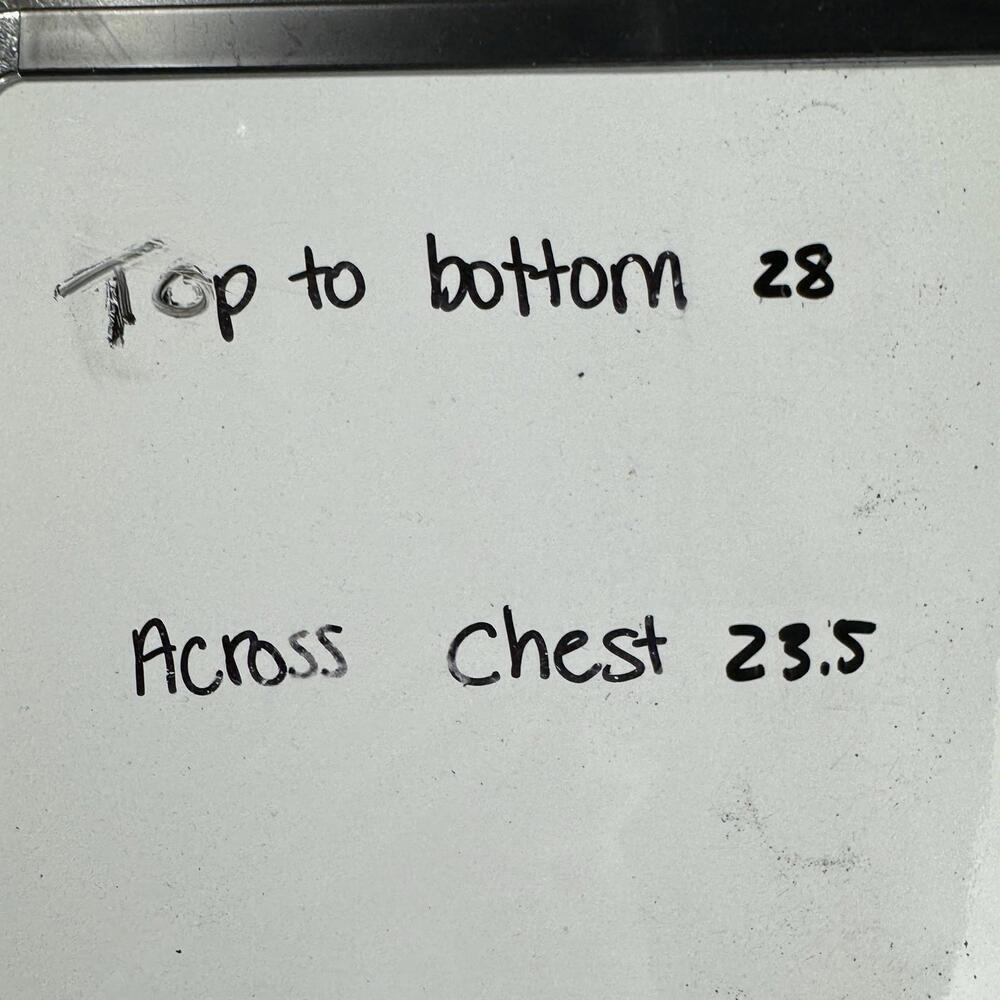 Top to bottom 28
Across Chest 23.5